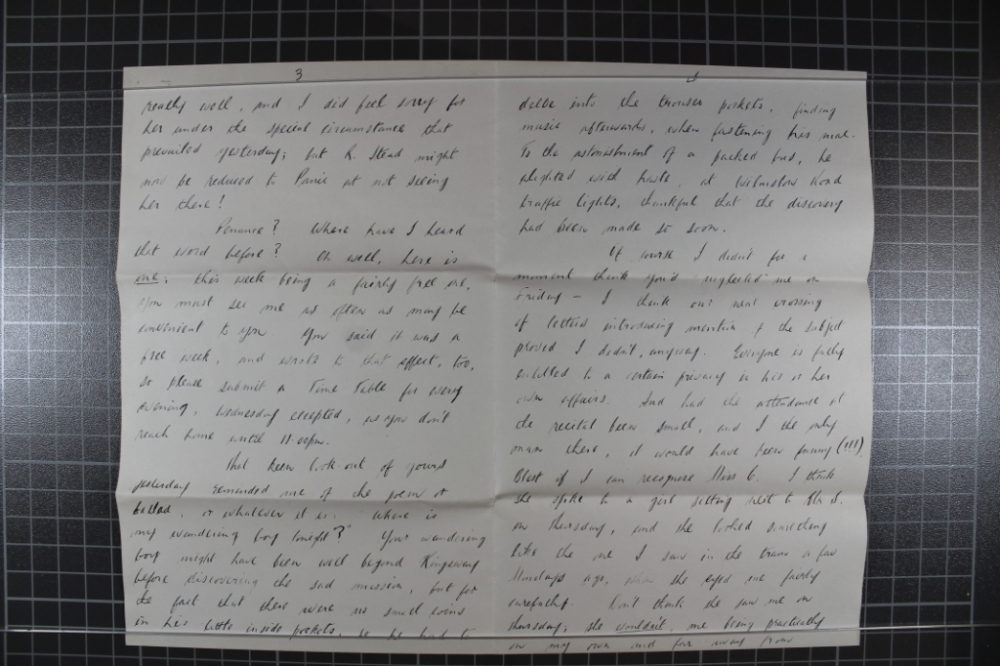 3
really well, and I did feel sorry for
her under the special circumstances that
prevailed yesterday; but R. Stead might
now be reduced to Panic at not seeing
her there!
Penance? Where have I heard
that word before? Oh well, here is
one; this week being a fairly free one,
you must see me as often as may be
convenient to you. You said it was a
free week, and wrote to that effect, too,
so please submit a Time Table for every
evening, Wednesday excepted, as you don't
reach home until 11.00pm.
That keen look-out of yours
yesterday reminded me of the poem or
ballad, or whatever it is: Where is
my wandering boy tonight?" Your wandering
boy might have been well beyond Kingsway
before discovering the sad mission, but for
the fact that there were no small coins
in his little inside pockets, so he had to
delve into the trouser pockets, finding
music afterwards, when fastening his mac.
To the astonishment of a packed bus, he
alighted with haste, at Wilmslow Road
traffic lights, thankful that the discovery
had been made so soon.
Of course I didn't for a
moment think you'd neglected me on
Friday – I think our next crossing
of letters introducing mention of the subject
proved I didn't, anyway. Everyone is fully
entitled to a certain privacy in his or her
own affairs. And had the attendance at
the recital been small, and I the only
man there, it would have been funny (!!!)
Blest if I can recognise Miss G. I think
she spoke to a girl sitting next to
on Thursday, and she looked something
like the one I saw in the tram a few
Mondays ago, when she eyed me fairly
carefully. Don't think she saw me on
Thursday; she wouldn't, me being practically
on my own and far away from